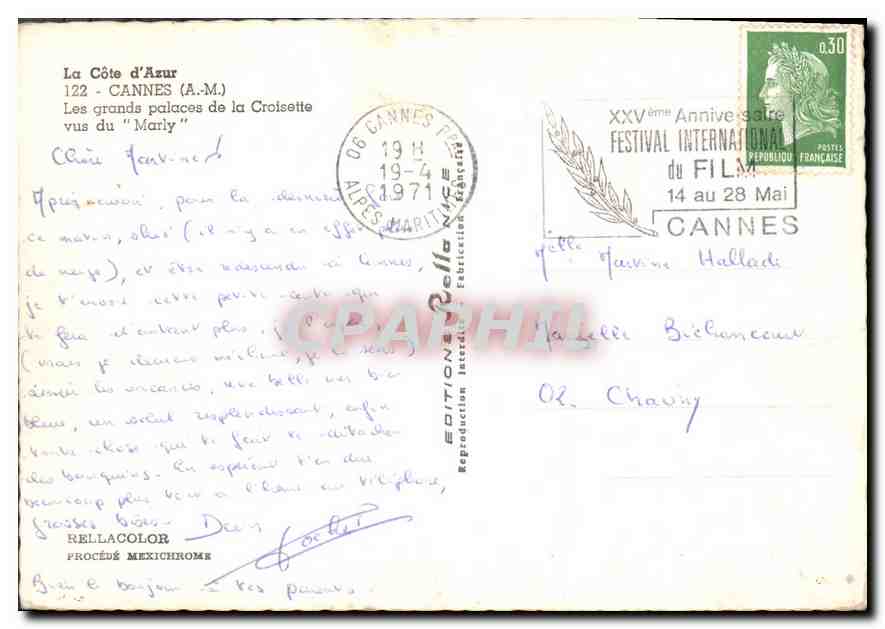 La Côte d'Azur
122 - CANNES (A.-M.)
Les grands palaces de la Croisette
vus du "Marly"
Chère Martine
Après avoir, pour la dernière fois
ce matin, skié (il n'y a en effet plus
de neige), et être redescendu à Cannes,
je t'envoie cette petite carte qui
te fera d'autant plus, je
(mais je deviens méchant, je le sens)
les vacances, une belle mer bien
bleue, un soleil resplendissant, enfin
toute chose qui te fait te détacher
des bouquins. En espérant t'en dire
beaucoup plus tout à l'heure au téléphone,
grosses bises
Bien le bonjour à tes parents.
RELLACOLOR
PROCÉDÉ MEXICHROME
EDITIONS Rella NICE
Reproduction Interdite - Fabrication Française
06 CANNES
19 H
19-4
1971
ALPES-MARITIMES
XXVème Anniversaire
FESTIVAL INTERNATIONAL
du FILM
14 au 28 Mai
CANNES
0,30
POSTES
REPUBLIQUE FRANÇAISE
Melle Martine Halladi
02. Chauny
CPAPHIL